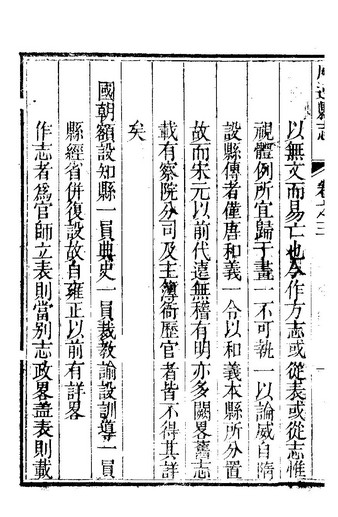 威遠縣志
卷之三
以無文而易亡也今作方志或從表或從志惟
視體例所宜歸于畫一不可執一以論威自隋
設縣傳者僅唐和義一令以和義本縣所分置
故而宋元以前代遠無稽有明亦多闕畧舊志
載有察院分司及主簿衙歷官者皆不得其詳
矣
國朝額設知縣一員典史一員裁教諭設訓導一員
縣經省併復設故自雍正以前有詳畧
作志者爲官師立表則當别志政畧蓋表則載